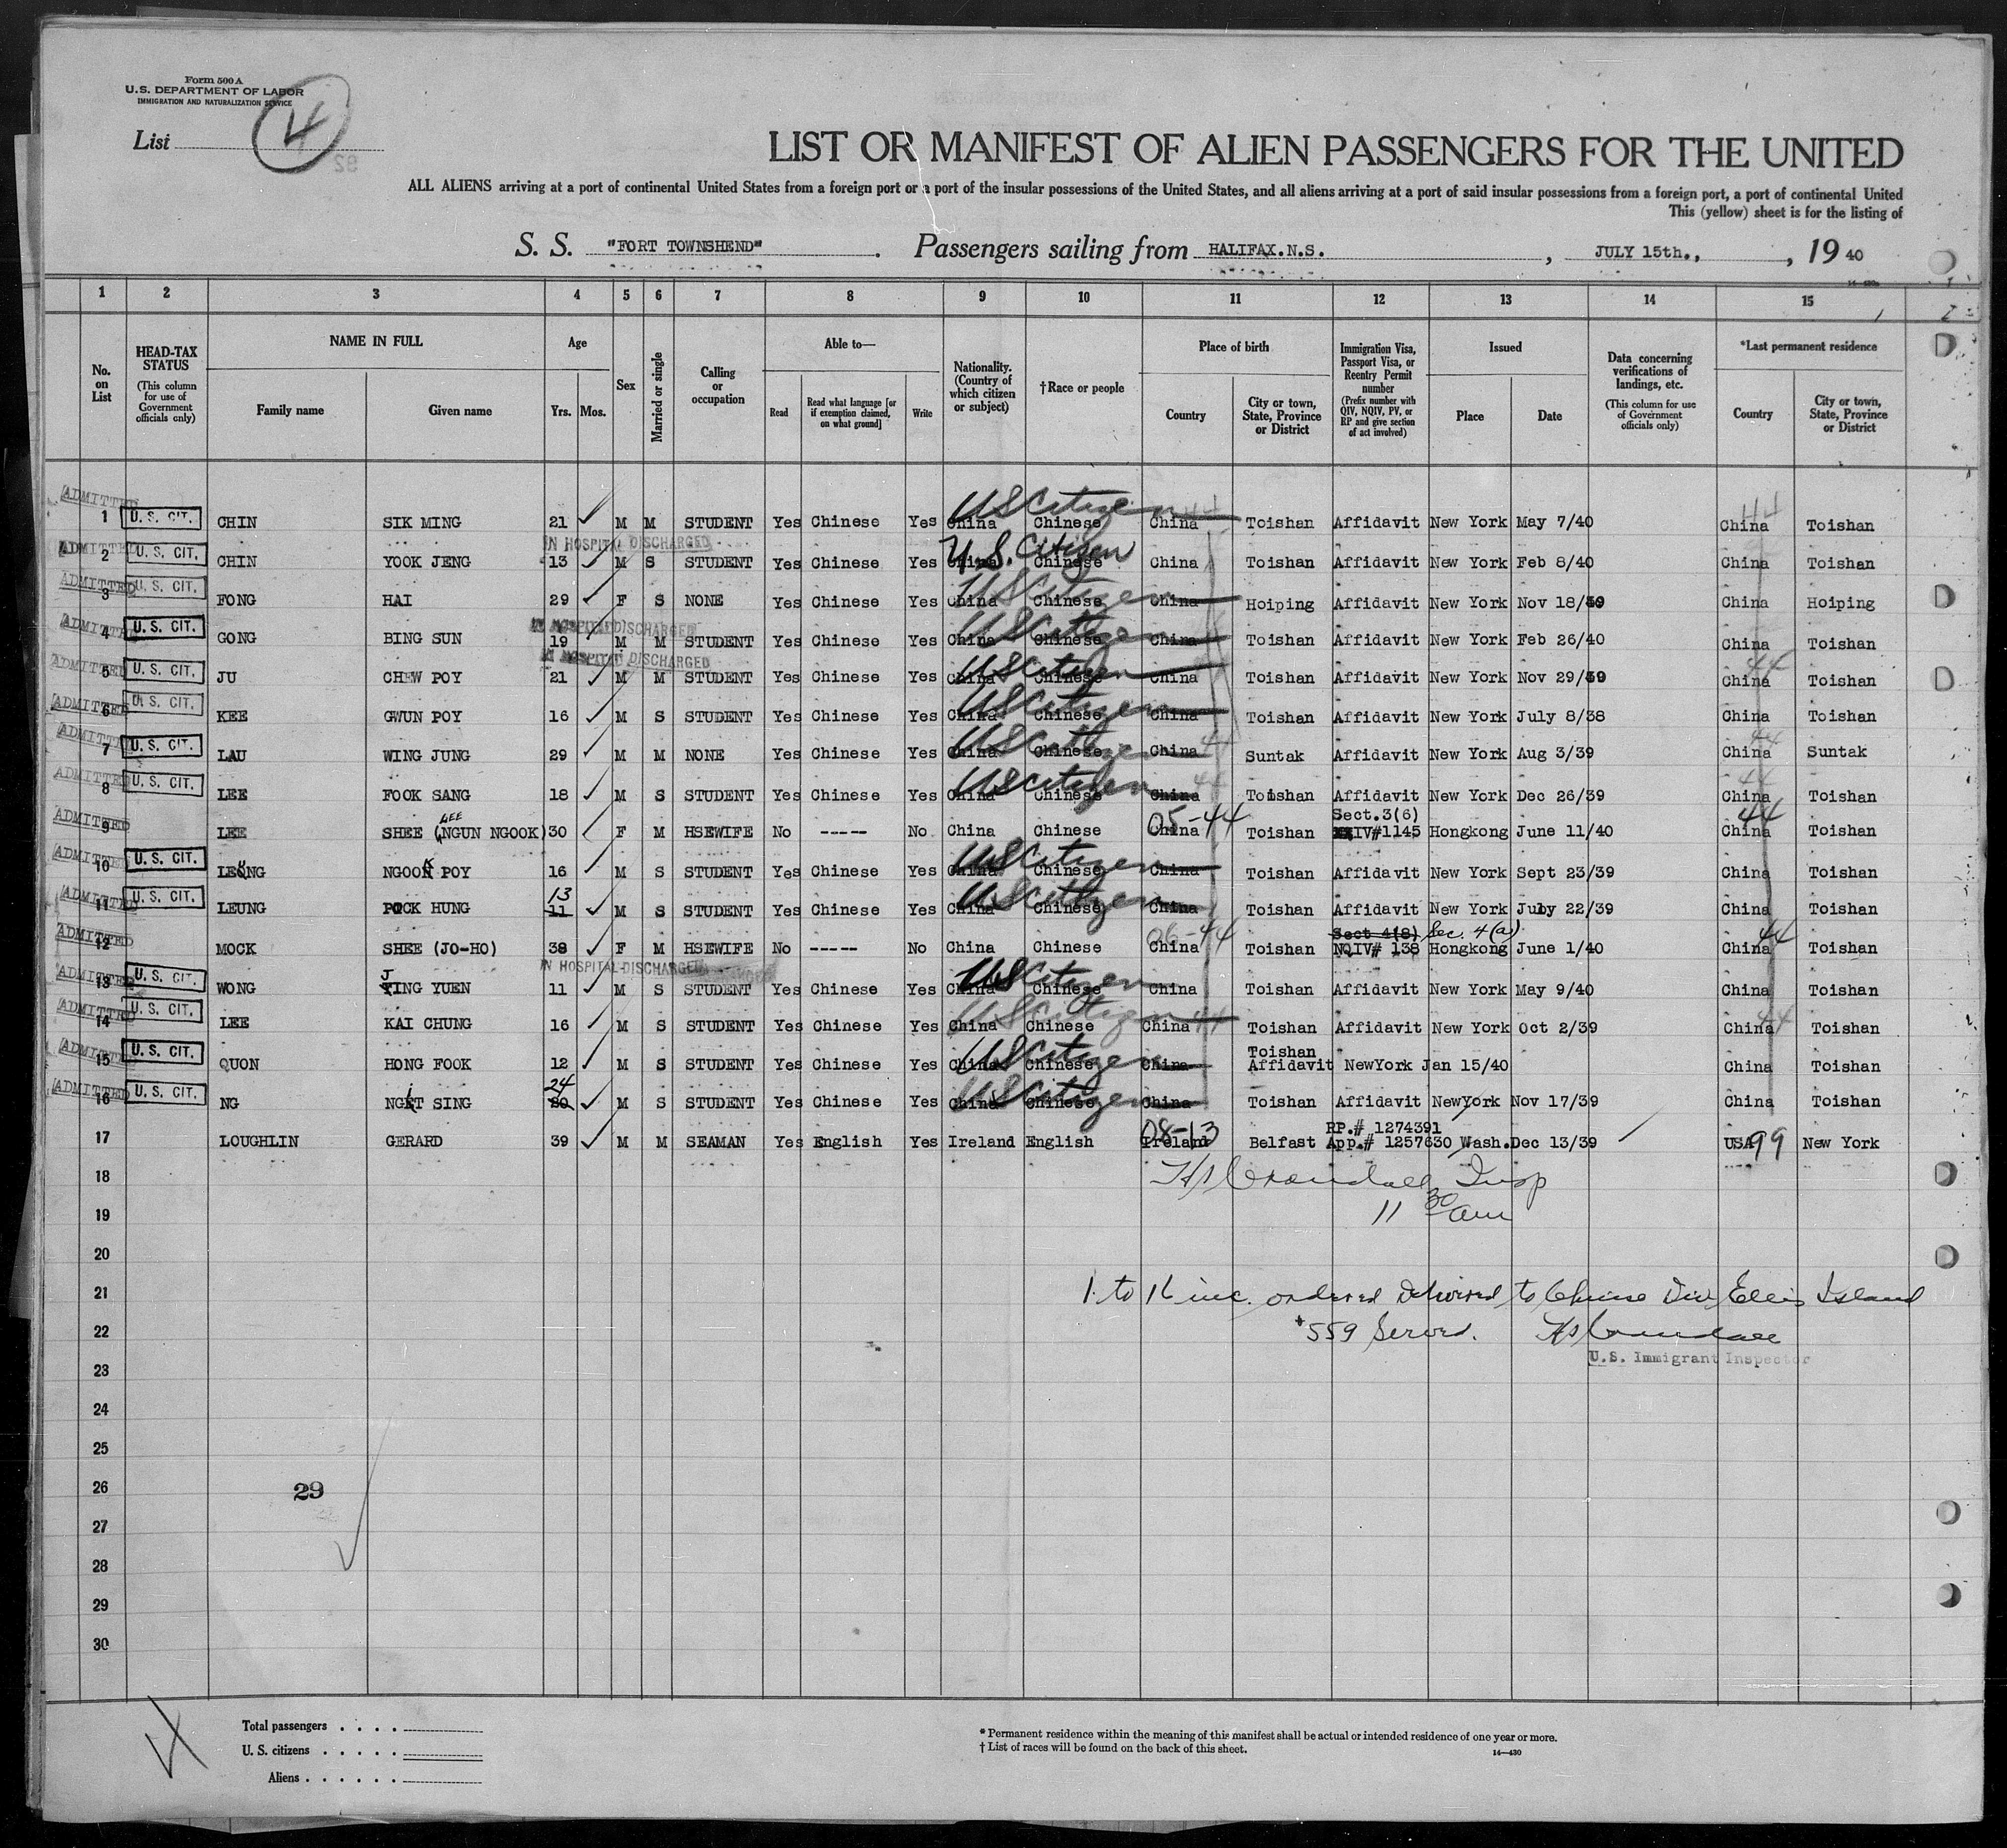 Form 500 A
U.S. DEPARTMENT OF LABOR
IMMIGRATION AND NATURALIZATION SERVICE
List 4
LIST OR MANIFEST OF ALIEN PASSENGERS FOR THE UNITED
ALL ALIENS arriving at a port of continental United States from a foreign port or a port of the insular possessions of the United States, and all aliens arriving at a port of said insular possessions from a foreign port, a port of continental United
This (yellow) sheet is for the listing of
S. S. "FORT TOWNSHEND". Passengers sailing from HALIFAX.N.S., JULY 15th., , 19 40
1 2 3 4 5 6 7 8 9 10 11 12 13 14 15
No. on List
HEAD-TAX STATUS (This column for use of Government officials only)
NAME IN FULL Family name Given name
Age Yrs. Mos.
Sex
Married or single
Calling or occupation
Able to— Read Read what language [or if exemption claimed, on what ground] Write
Nationality. (Country of which citizen or subject)
†Race or people
Place of birth Country City or town, State, Province or District
Immigration Visa, Passport Visa, or Reentry Permit number (Prefix number with QIV, NQIV, PV, or RP and give section of act involved)
Issued Place Date
Data concerning verifications of landings, etc. (This column for use of Government officials only)
*Last permanent residence Country City or town, State, Province or District
ADMITTED 1 U. S. CIT. CHIN SIK MING 21 M M STUDENT Yes Chinese Yes China Chinese US Citizen China 44 Toishan Affidavit New York May 7/40 44 China Toishan
IN HOSPITAL DISCHARGED
ADMITTED 2 U. S. CIT. CHIN YOOK JENG 13 M S STUDENT Yes Chinese Yes China Chinese U.S. Citizen China Toishan Affidavit New York Feb 8/40 China Toishan
ADMITTED 3 U. S. CIT. FONG HAI 29 F S NONE Yes Chinese Yes China Chinese US Citizen China Hoiping Affidavit New York Nov 18/39 China Hoiping
IN HOSPITAL DISCHARGED
ADMITTED 4 U. S. CIT. GONG BING SUN 19 M M STUDENT Yes Chinese Yes China Chinese US Citizen China Toishan Affidavit New York Feb 26/40 China Toishan
IN HOSPITAL DISCHARGED
ADMITTED 5 U. S. CIT. JU CHEW POY 21 M M STUDENT Yes Chinese Yes China Chinese US Citizen China Toishan Affidavit New York Nov 29/39 44 China Toishan
ADMITTED 6 U. S. CIT. KEE GWUN POY 16 M S STUDENT Yes Chinese Yes China Chinese US Citizen China Toishan Affidavit New York July 8/38 China Toishan
ADMITTED 7 U. S. CIT. LAU WING JUNG 29 M M NONE Yes Chinese Yes China Chinese US Citizen China 44 Suntak Affidavit New York Aug 3/39 44 China Suntak
ADMITTED 8 U. S. CIT. LEE FOOK SANG 18 M S STUDENT Yes Chinese Yes China Chinese US Citizen China 44 Toishan Affidavit New York Dec 26/39 44 China Toishan
ADMITTED 9 LEE SHEE (LEE NGUN NGOOK) 30 F M HSEWIFE No ----- No China Chinese China 05-44 Toishan Sect.3(6) IV#1145 Hongkong June 11/40 44 China Toishan
ADMITTED 10 U. S. CIT. LEUNG NGOOK POY 16 M S STUDENT Yes Chinese Yes China Chinese US Citizen China Toishan Affidavit New York Sept 23/39 China Toishan
ADMITTED 11 U. S. CIT. LEUNG POCK HUNG 13 11 M S STUDENT Yes Chinese Yes China Chinese US Citizen China Toishan Affidavit New York July 22/39 China Toishan
ADMITTED 12 MOCK SHEE (JO-HO) 38 F M HSEWIFE No ----- No China Chinese China 06-44 Toishan Sect 4(8) Sec. 4(a) NQIV# 138 Hongkong June 1/40 44 China Toishan
IN HOSPITAL DISCHARGED
ADMITTED 13 U. S. CIT. WONG JING YUEN 11 M S STUDENT Yes Chinese Yes China Chinese US Citizen China Toishan Affidavit New York May 9/40 China Toishan
ADMITTED 14 U. S. CIT. LEE KAI CHUNG 16 M S STUDENT Yes Chinese Yes China Chinese US Citizen China 44 Toishan Affidavit New York Oct 2/39 China 44 Toishan
ADMITTED 15 U. S. CIT. QUON HONG FOOK 12 M S STUDENT Yes Chinese Yes China Chinese US Citizen China Toishan Affidavit NewYork Jan 15/40 China Toishan
ADMITTED 16 U. S. CIT. NG NGIT SING 24 20 M S STUDENT Yes Chinese Yes China Chinese US Citizen China Toishan Affidavit NewYork Nov 17/39 China Toishan
17 LOUGHLIN GERARD 39 M M SEAMAN Yes English Yes Ireland English Ireland 08-13 Belfast RP.# 1274391 App.# 1257630 Wash. Dec 13/39 USA 99 New York
18 HS Crandall Insp
19 11 30 am
20
21 1 to 16 inc. ordered delivered to Chinese Div Ellis Island
22 #559 Served. HS Crandall
U.S. Immigrant Inspector
23
24
25
26 29
27
28
29
30
Total passengers . . . .
U. S. citizens . . . . .
Aliens . . . . . .
* Permanent residence within the meaning of this manifest shall be actual or intended residence of one year or more.
† List of races will be found on the back of this sheet.
14—430